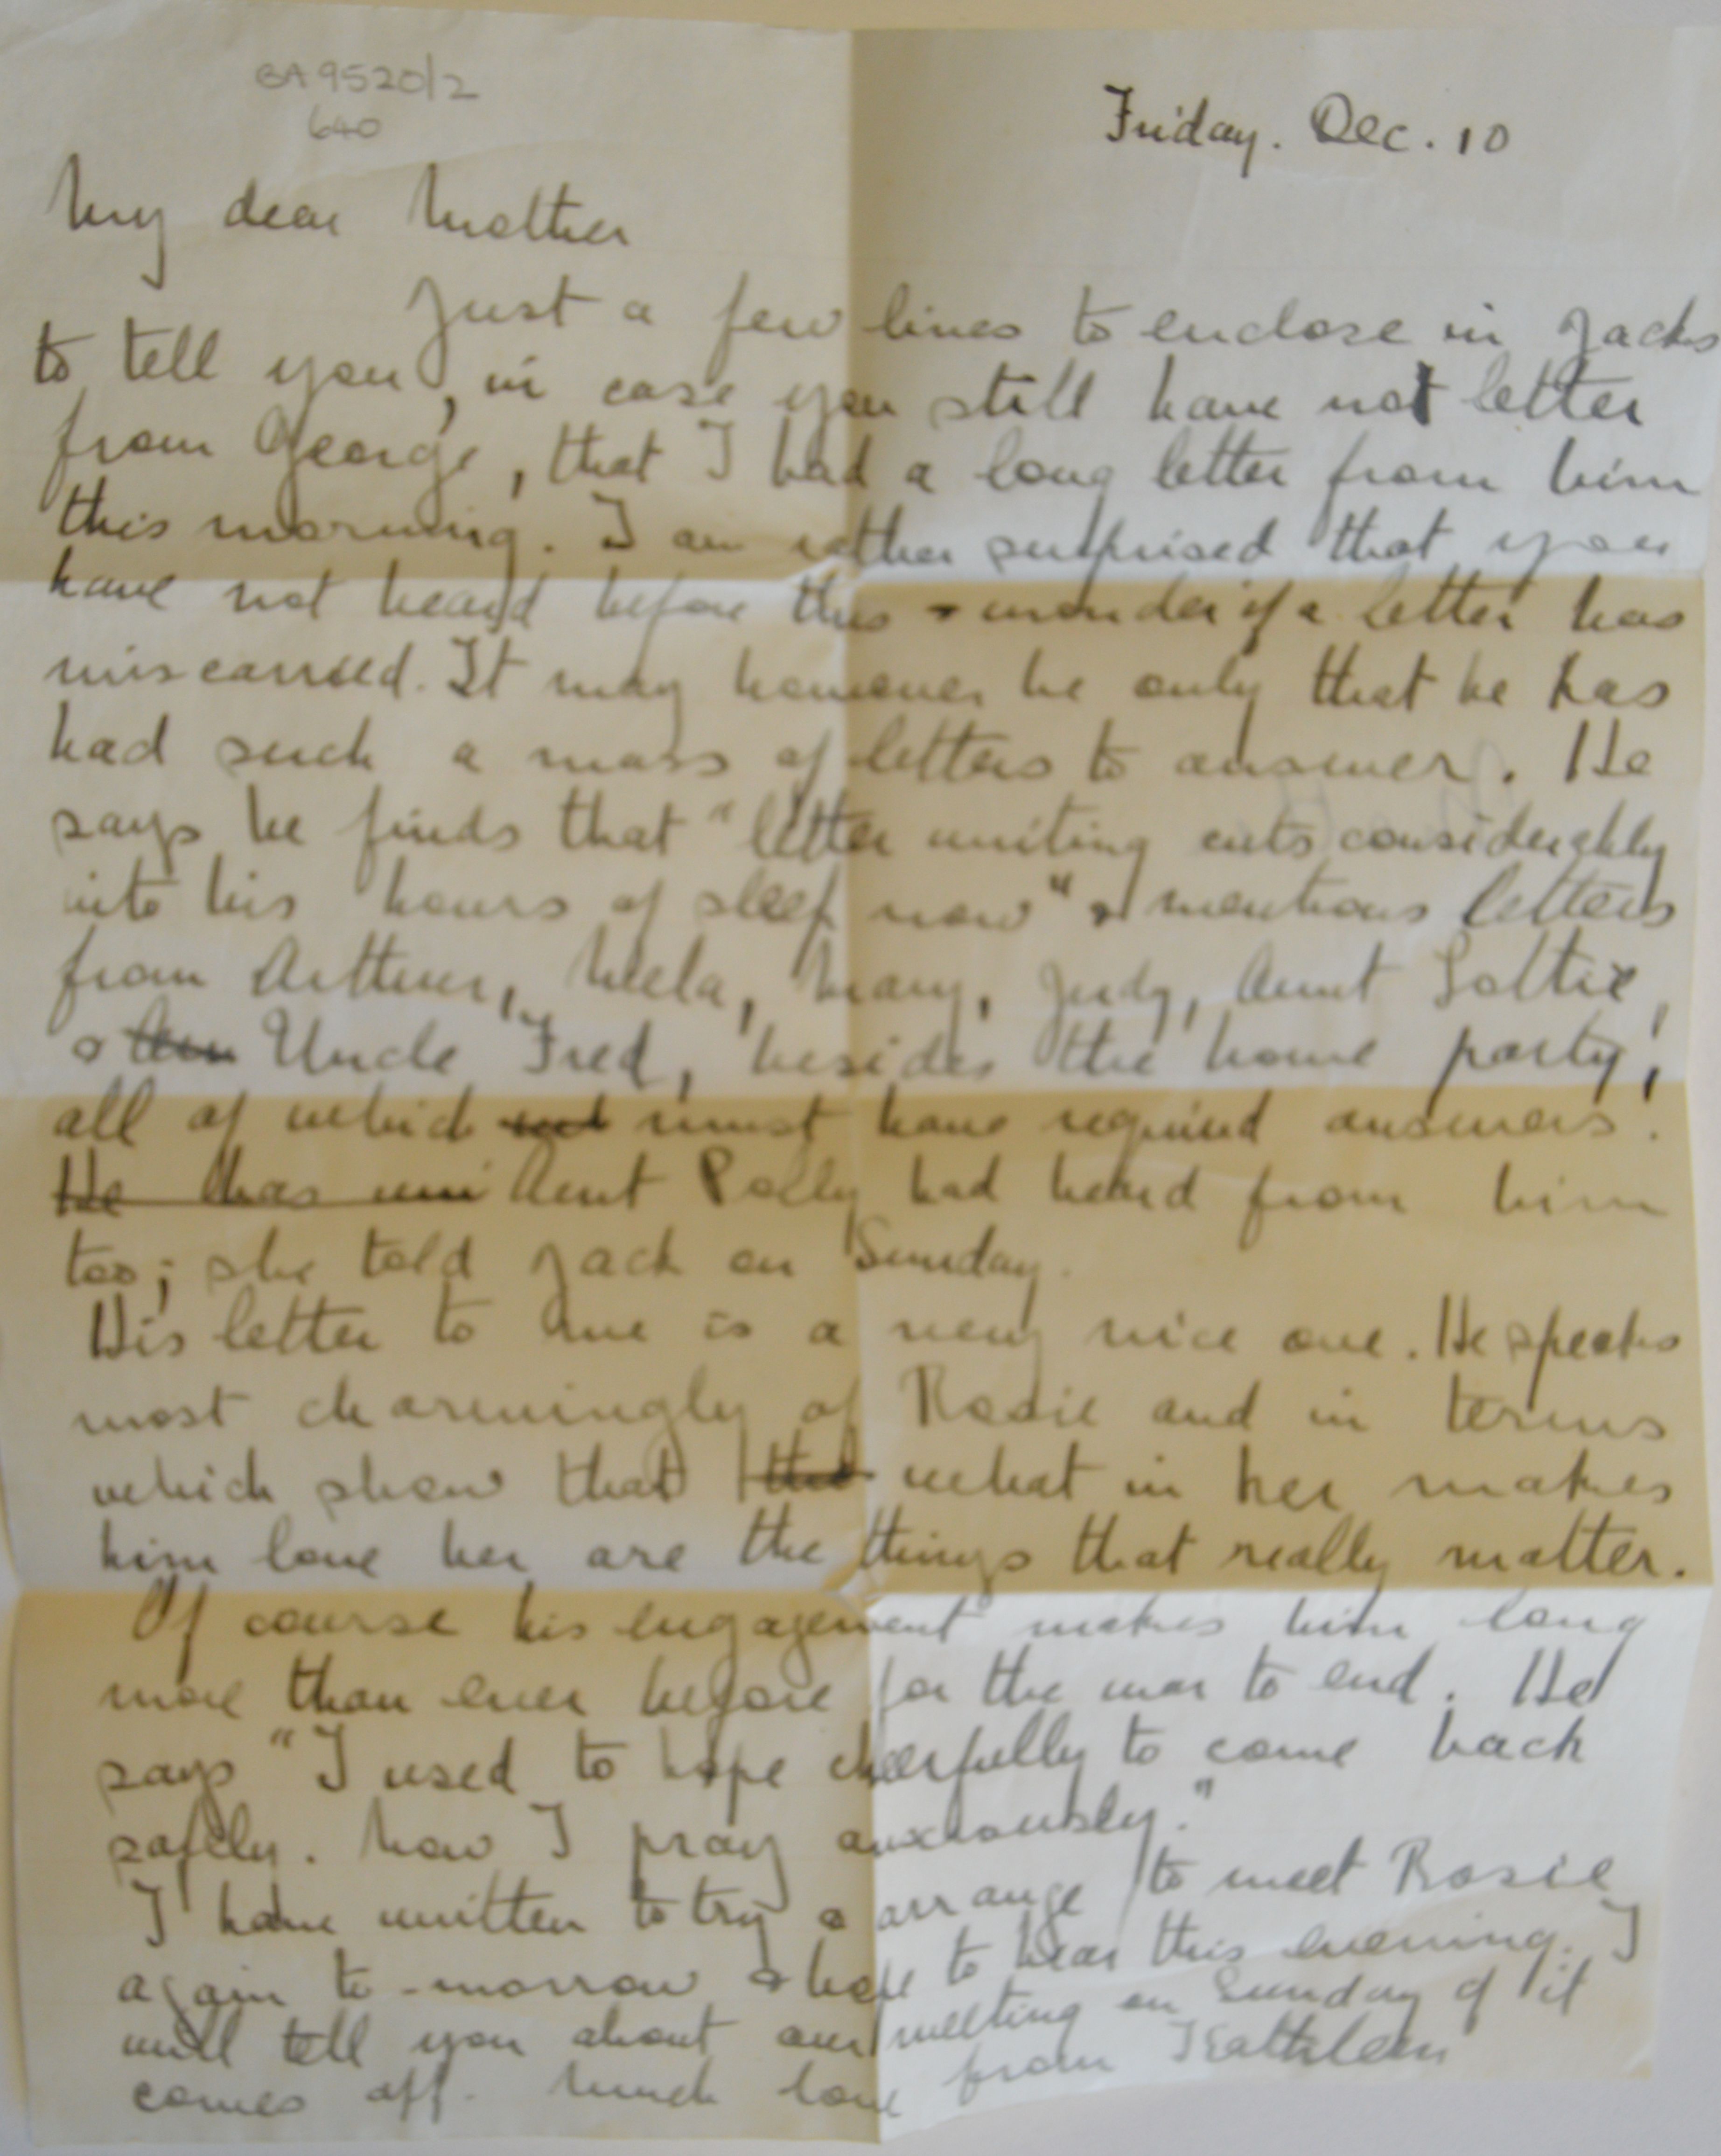 BA9520/2
640
Friday. Dec. 10
My dear Mother
Just a few lines to enclose in Jacks
to tell you, in case you still have not letter
from George, that I had a long letter from him
this morning. I am rather surprised that you
have not heard before this & wonder if a letter has
miscarried. It may however be only that he has
had such a mass of letters to answer. He
says he finds that "letter writing cuts considerably
into his hours of sleep now" & mentions letters
from Arthur, Mela, Mary, Judy, Aunt Lottie,
& Uncle Fred, besides the home party,
all of which must have required answers!
He has Aunt Polly had heard from him
too; she told Jack on Sunday.
His letter to me is a very nice one. He speaks
most charmingly of Rosie and in terms
which show that that what in her makes
him love her are the things that really matter.
Of course his engagement makes him long
more than ever before for the war to end. He
says "I used to hope cheerfully to come back
safely. Now I pray anxiously."
I have written to try & arrange to meet Rosie
again to-morrow & hope to hear this evening. I
will tell you about our meeting on Sunday if it
comes off. Much love from Kathleen